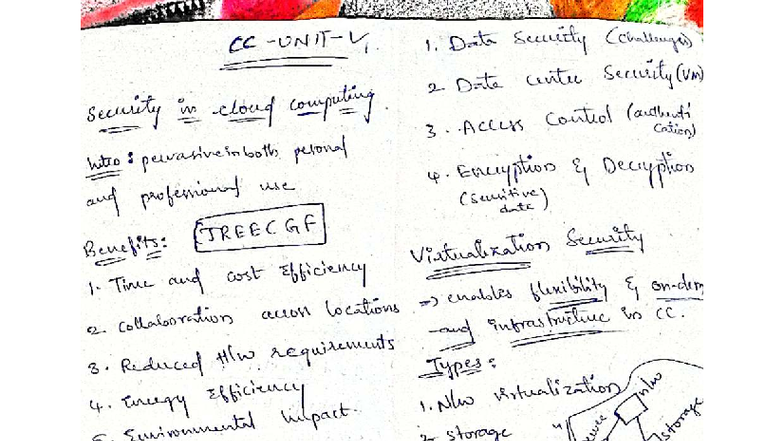 CC-UNIT-V
Security in cloud computing
Intro: pervasive in both personal
and professional use
Benefits: TREECGF
1. Time and cost Efficiency
2. Collaboration across locations
3. Reduced H/w requirements
4. Energy Efficiency
5. Environmental Impact.
1. Data Security (Challenges)
2. Data center Security (VM)
3. Access Control (authenti
cation)
4. Encryption & Decryption
(Sensitive
data)
Virtualization Security
=> enables flexibility & on-dem
-and infrastructure in CC.
Types:
1. N/w virtualization
2. storage
N/w
storage